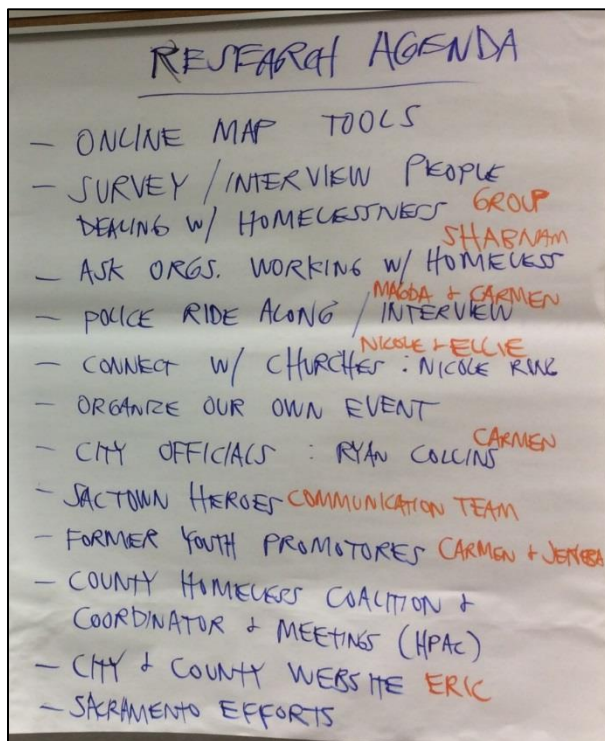 RESEARCH AGENDA
- ONLINE MAP TOOLS
- SURVEY / INTERVIEW PEOPLE
DEALING W/ HOMELESSNESS GROUP
SHABNAM
- ASK ORGS. WORKING W/ HOMELESS
MAGDA & CARMEN
- POLICE RIDE ALONG / INTERVIEW
NICOLE & ELLIE
- CONNECT W/ CHURCHES : NICOLE RING
- ORGANIZE OUR OWN EVENT
CARMEN
- CITY OFFICIALS : RYAN COLLINS
- SACTOWN HEROES COMMUNICATION TEAM
- FORMER YOUTH PROMOTORES CARMEN &
- COUNTY HOMELESS COALITION &
COORDINATOR & MEETINGS (HPAC)
- CITY & COUNTY WEBSITE ERIC
- SACRAMENTO EFFORTS